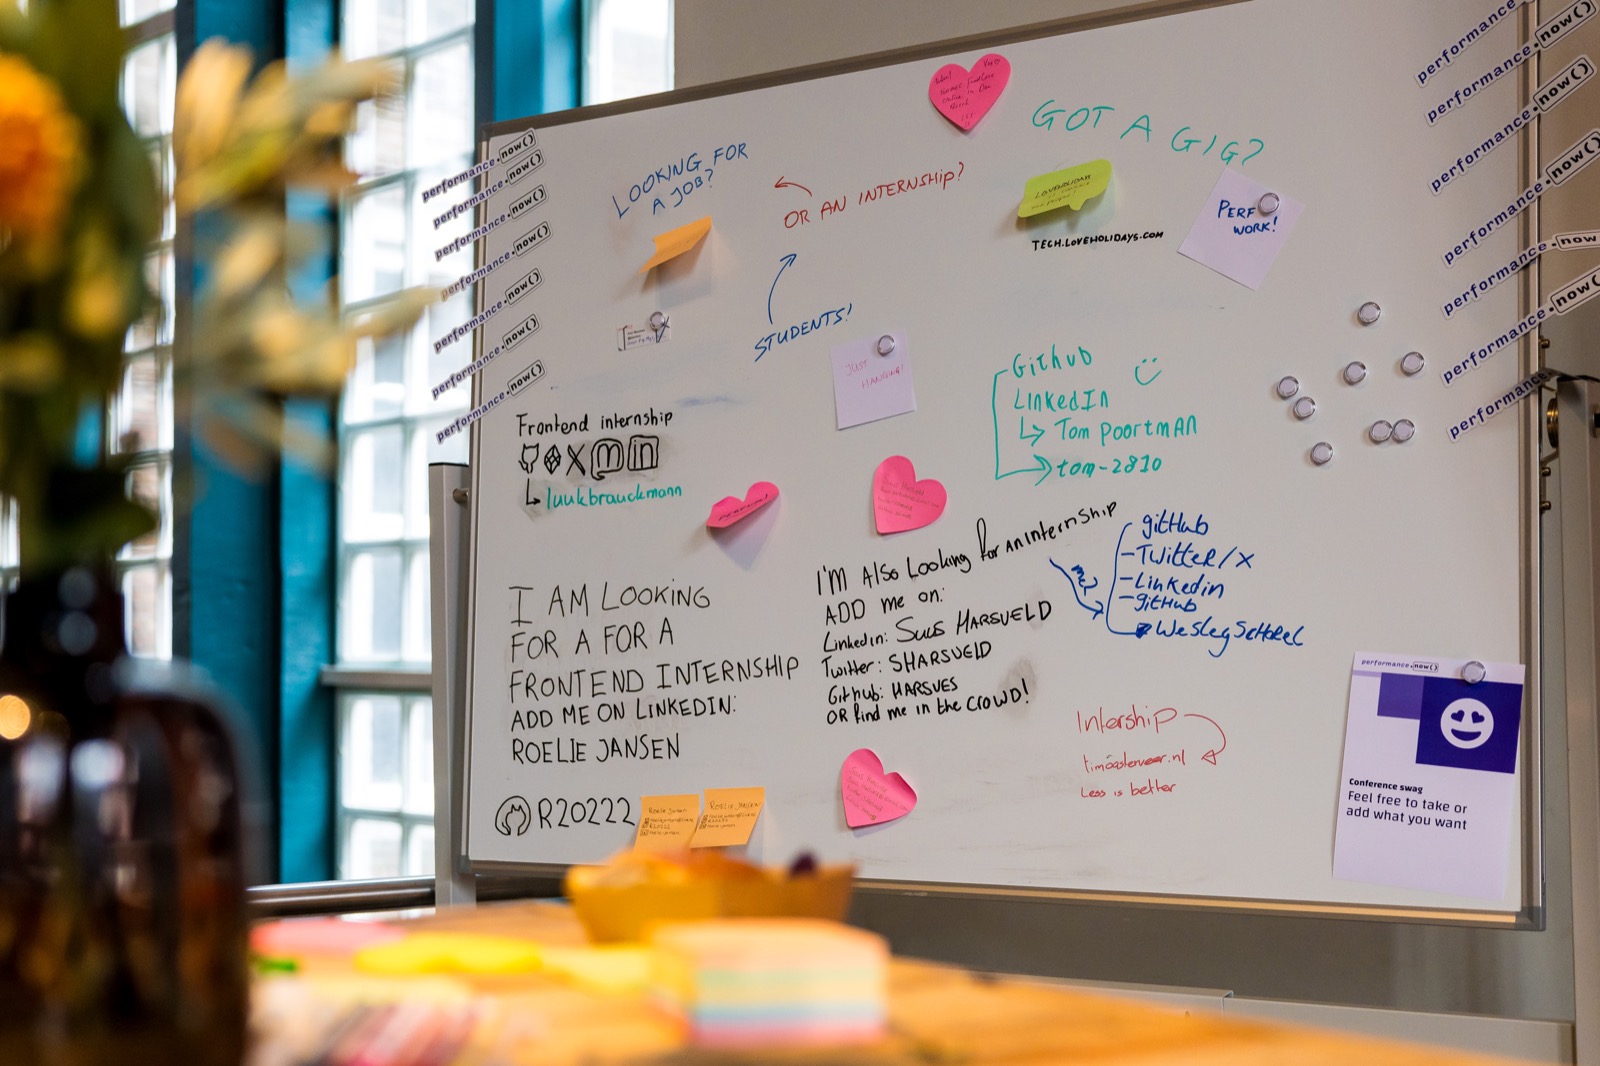 performance.now()
performance.now()
performance.now()
performance.now()
performance.now()
performance.now()
performance.now()
performance.now()
LOOKING FOR
A JOB?
OR AN INTERNSHIP?
STUDENTS!
GOT A GIG?
LOVEHOLIDAYS
TECH.LOVEHOLIDAYS.COM
PERF
WORK!
JUST
HANGING!
Frontend internship
luukbrauckmann
GitHub
LinkedIn
Tom Poortman
tom-2810
I AM LOOKING
FOR A FOR A
FRONTEND INTERNSHIP
ADD ME ON LINKEDIN:
ROELIE JANSEN
R20222
Roelie Jansen
R20222
ROELIE JANSEN
I'M Also Looking for AN InternShip
ADD me on:
LinkedIn: Suus HARSVELD
Twitter: SHARSVELD
Github: HARSVES
OR find me in the CROWD!
me?
gitHub
Twitter/X
Linkedin
gitHub
Intership
Less is better
performance.now()
performance.now()
performance.now()
performance.now()
performance.now()
performance.now()
performance.now()
performance.now()
Conference swag
Feel free to take or
add what you want